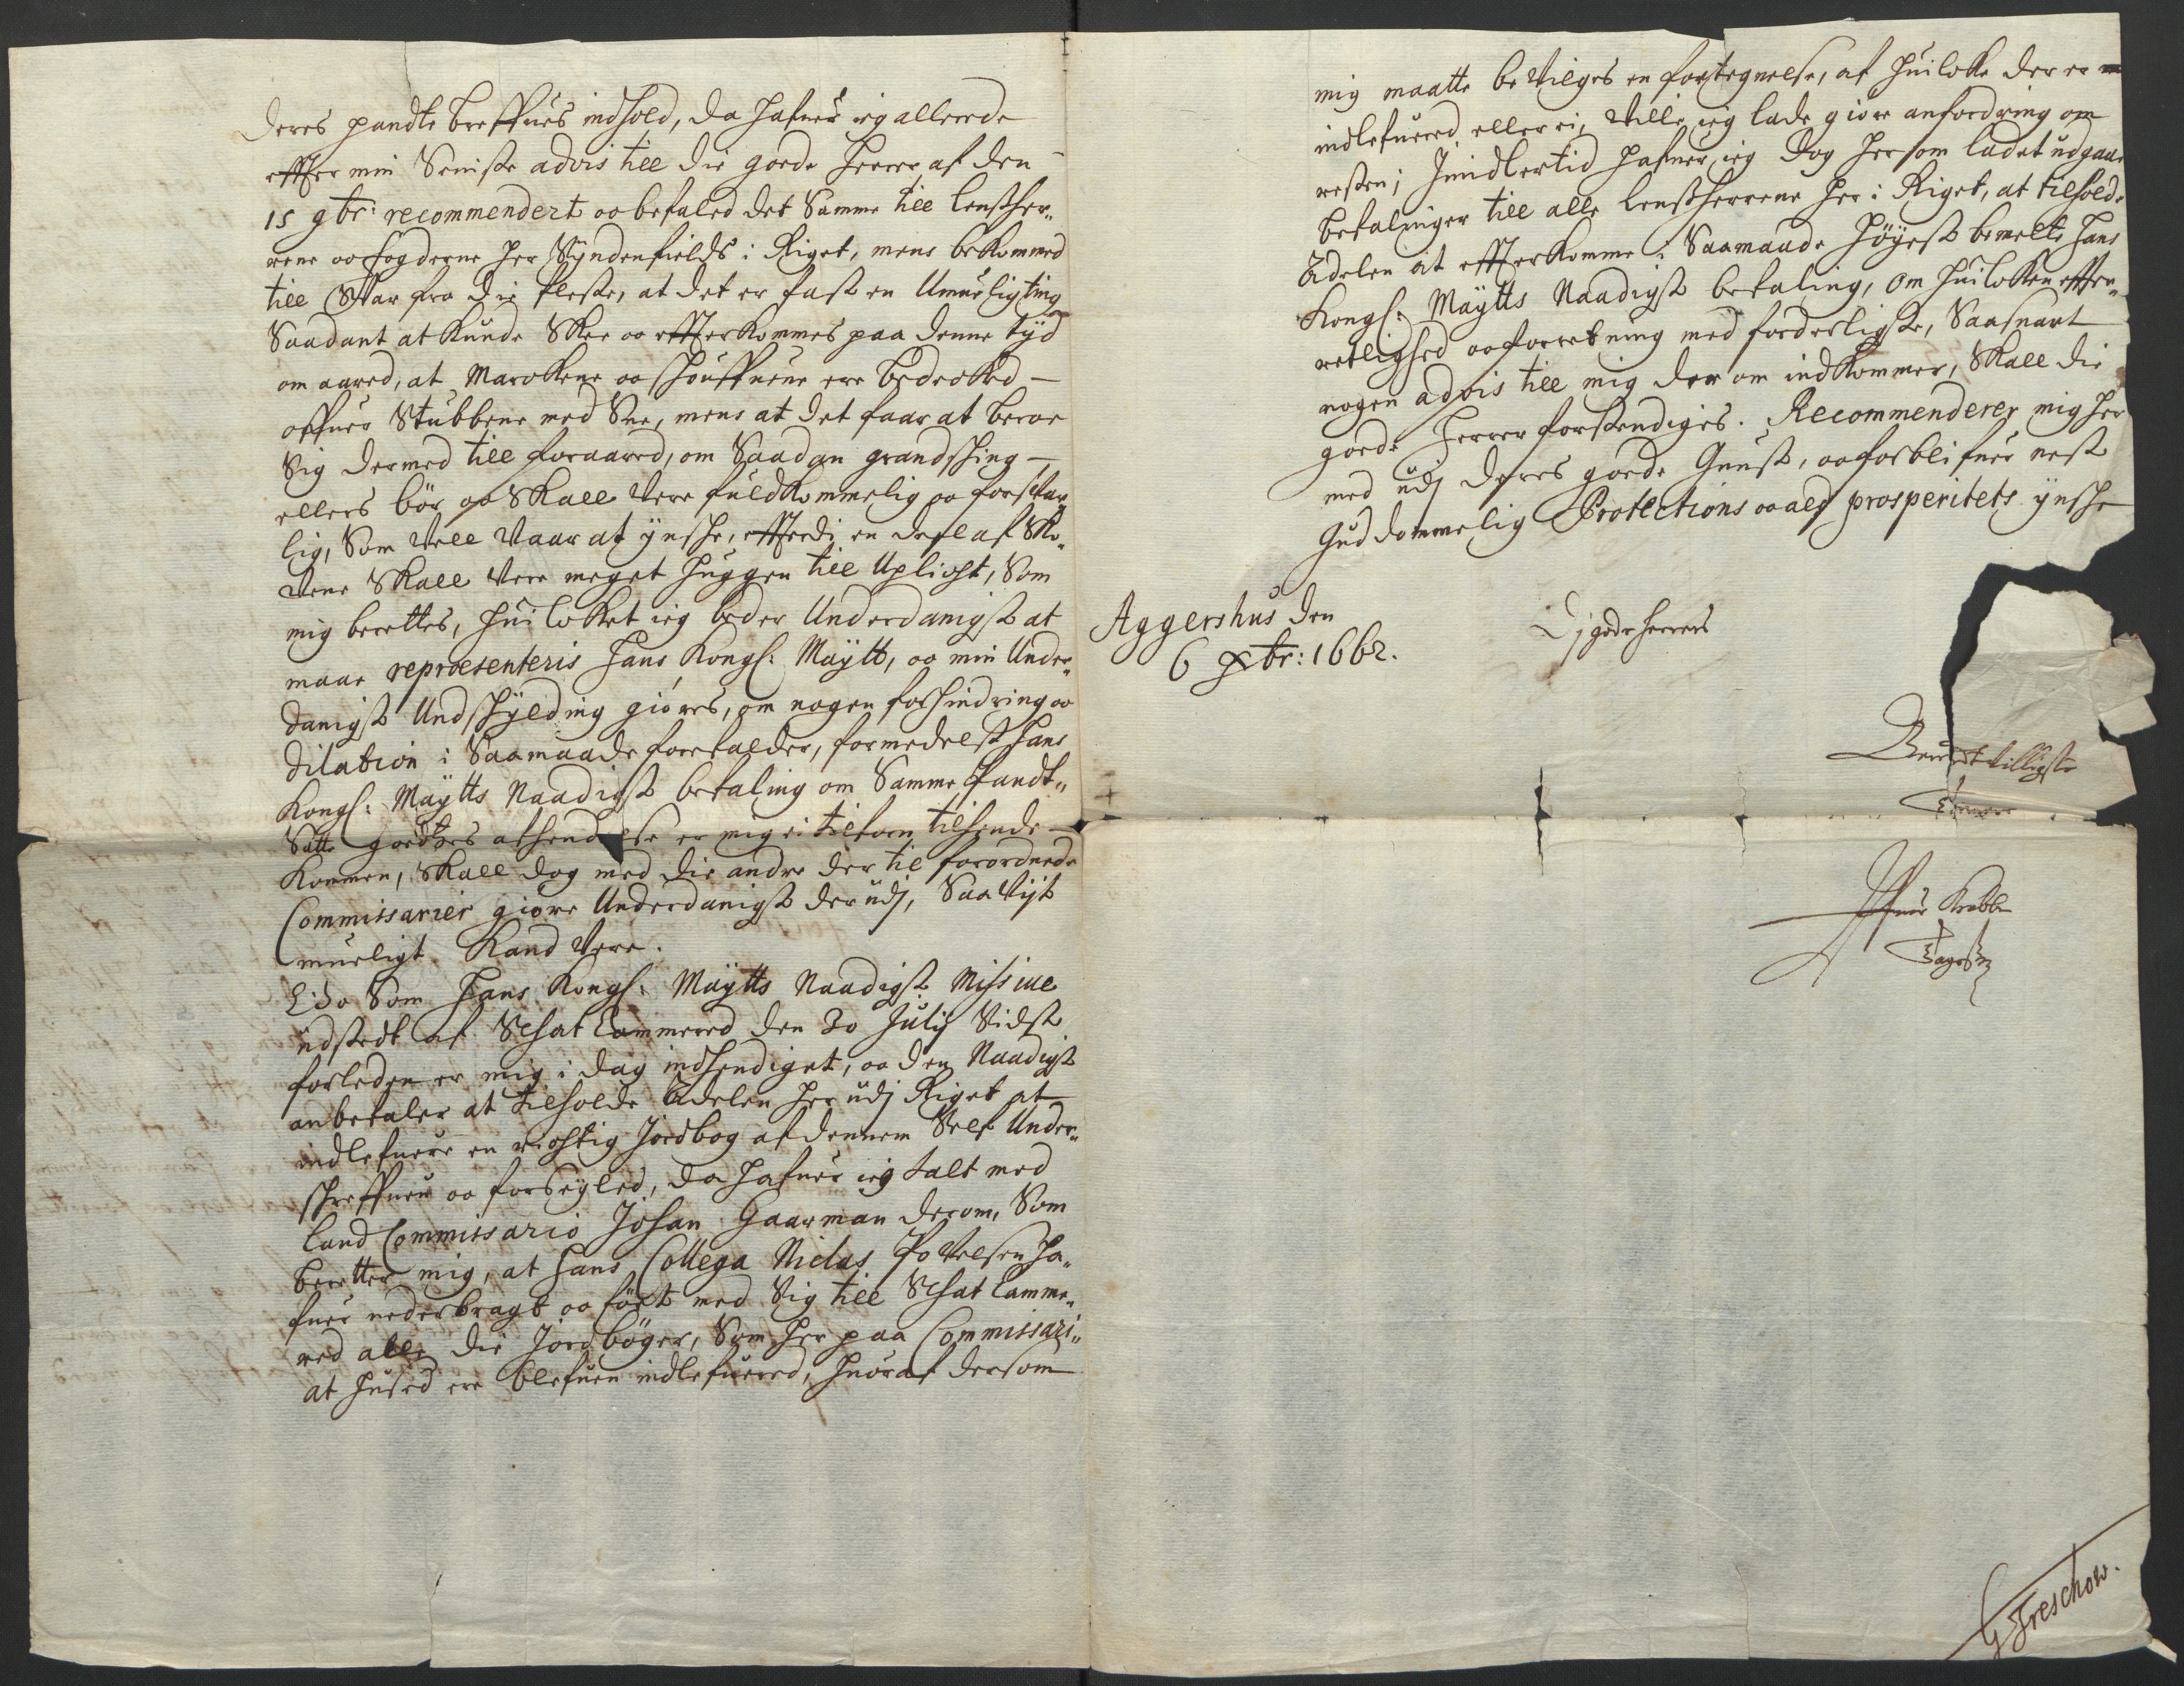 deres pandte breffues indhold, da hafuer ieg allerede
effter min Seniste advis till die goede Herrer af den
15 9br: recommendert oc befaled det Samme till lenßher„
rene oc fogderne her Syndenfields i Riget, mens bekommed
till Svar fra die fleste, at det er fast en Umueligting
Saadant at kunde Skee oc effterkommes paa denne tyd
om aared, at Marckene oc schouffuene ere bedecked
offuer Stubbene med Snee, mens at det faar at beroe
Sig dermed till foraared, om Saadan grandsching
ellers bör oc Skall Vere fuldkommelig oc forsvar
lig, Som Vell Vaar at ynsche, effterdi en deel af Sko„
vene Skall Vere meget huggen till Upliost, Som
mig berettes, huilcket ieg beder Underdanigst at
maae repræsenteris Hans Kongl: Maytt, oc min Under„
danigst Undschylding giöres, om nogen forhindring oc
dilation i Saamaade forefalder, formedelst Hans
Kongl: Maytts Naadigst befaling om Samme Pandt„
Satte goedtzes er mig ei tilforn tilhende
kommen, Skall dog med die andre der til forordnede
Commissarier giöre Underdanigst derudj, Saa Vijt
mueligt Kand Vere.
Som Hans Kongl: Maytts Naadigst Missive
udstedt af SchatCammered den 30 Julij Sidst
forleden er mig i dag indhendiget, oc den Naadigst
anbefaler at tilholde Adelen her udj Riget at
indlefuere en rigtig Jordbog af dennem Self Under„
schreffuen oc forseyled, da hafuer ieg talt med
Land Commissario Johan Gaarman derom, Som
beretter mig, at hans Collega Niclas Povelsen ha„
fuer nederbragt oc fört med Sig till SchatCamme„
red alle die Jordböger, Som her paa Commissari„
at huset ere blefuen indlefuered, huoraf dersom
mig maatte beVilges en fortegnelse, af huilcke der er
indlefuered eller ei, Ville ieg lade giöre anfordring om
resten; Imidlertid hafuer ieg dog herom ladet udgaae
befalinger till alle Lenßherrene her i Riget, at tilholde
Adelen at effterkomme i Saamaade höyest bemelte Hans
Kongl: Maytts Naadigst befaling, om huilcken effter„
retlighed oc forretning med forderligste, Saasnart
nogen advis till mig der om indkommer, Skall die
goede Herrer forstendiges. Recommenderer mig her
med udj deres goede Gunst, oc forblifuer nest
Guddommelig Protections oc ald prosperitets ynsche
Aggershus den
6 xbr: 1662.
Dj gode Herrers
villigste
Tienner
Iffuer Krabbe
Tagesøn
G Treschow.